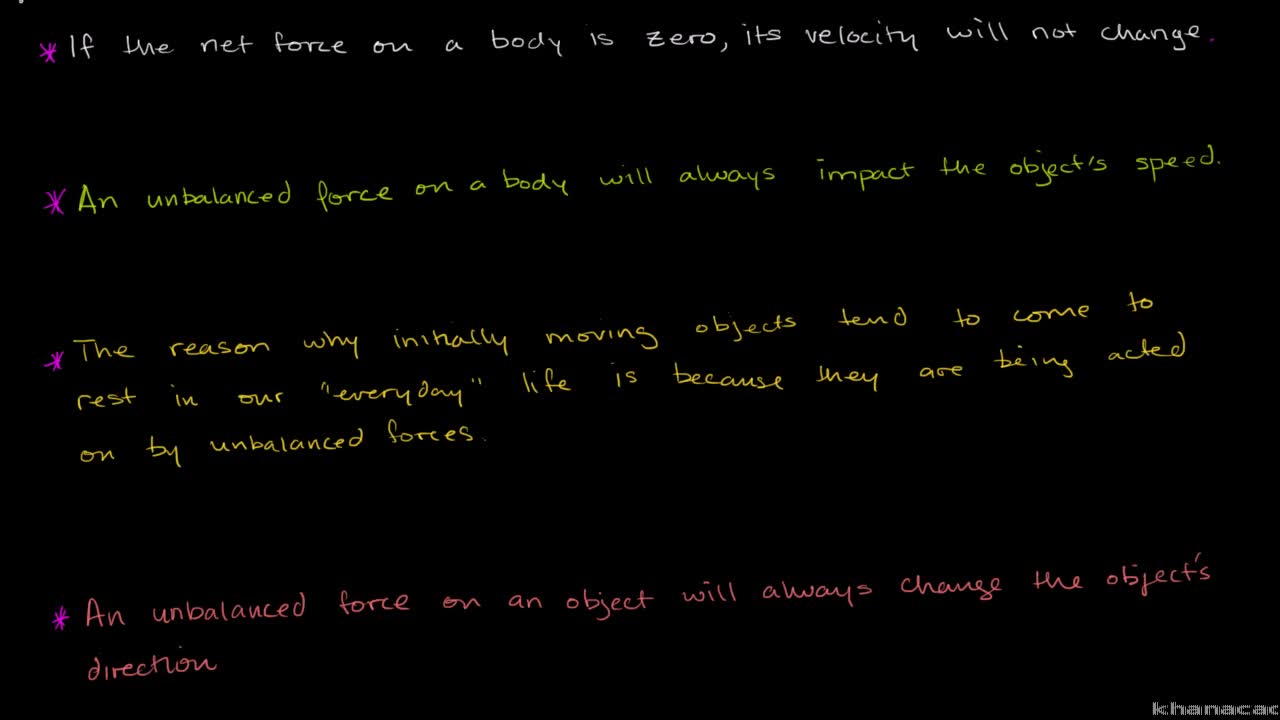 * If the net force on a body is zero, its velocity will not change.
* An unbalanced force on a body will always impact the object's speed.
* The reason why initially moving objects tend to come to
rest in our "everyday" life is because they are being acted
on by unbalanced forces.
* An unbalanced force on an object will always change the object's
direction
khanacac